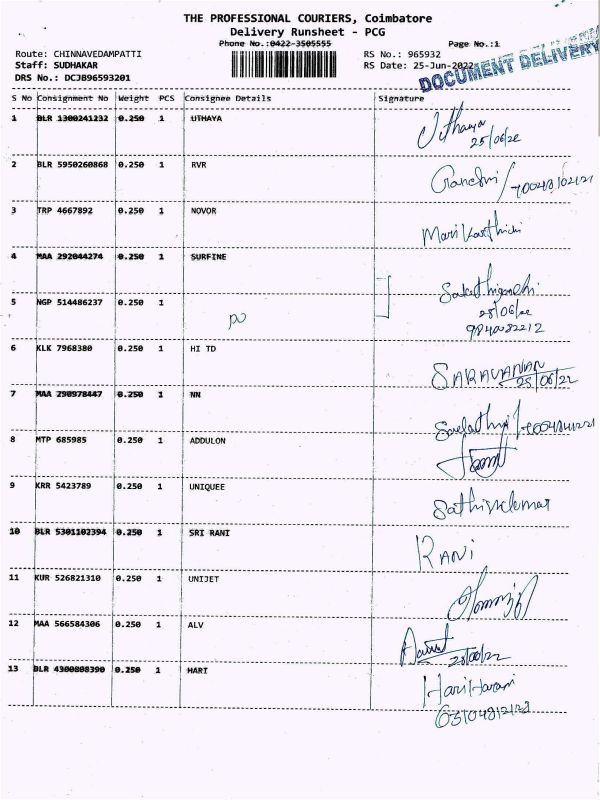 THE PROFESSIONAL COURIERS, Coimbatore
Delivery Runsheet - PCG
Phone No.:0422-3505555 Page No.:1
Route: CHINNAVEDAMPATTI RS No.: 965932
Staff: SUDHAKAR RS Date: 25-Jun-2022
DRS No.: DCJB96593201
DOCUMENT DELIVERY
S No Consignment No Weight PCS Consignee Details Signature
1 BLR 1300241232 0.250 1 UTHAYA Uthaya
25/06/22
2 BLR 5950260868 0.250 1 RVR
3 TRP 4667892 0.250 1 NOVOR Mari Karthick
4 MAA 292044274 0.250 1 SURFINE
5 NGP 514486237 0.250 1
25/06/22
9840082212
6 KLK 7968380 0.250 1 HI TD SARAVANAN
25/06/22
7 MAA 290978447 0.250 1 NN
8 MTP 685985 0.250 1 ADDULON
9 KRR 5423789 0.250 1 UNIQUEE Sathiskumar
10 BLR 5301102394 0.250 1 SRI RANI RANI
11 KUR 526821310 0.250 1 UNIJET
12 MAA 566584306 0.250 1 ALV
13 BLR 4300808390 0.250 1 HARI Hari Haran